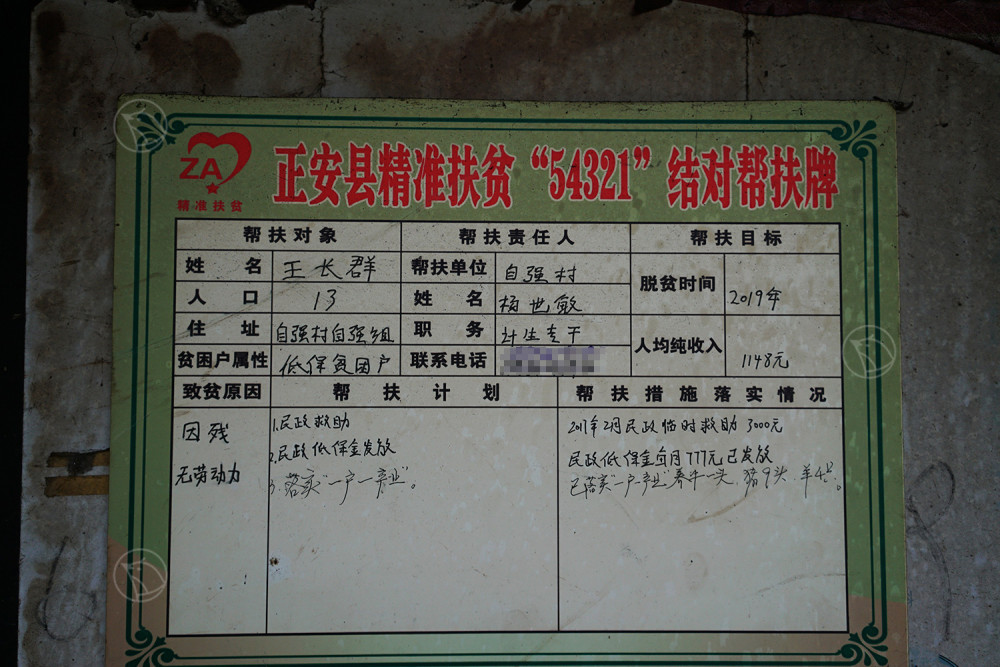 ZA
精准扶贫
正安县精准扶贫“54321”结对帮扶牌
帮扶对象 帮扶责任人 帮扶目标
姓名 王长群 帮扶单位 自强村 脱贫时间 2019年
人口 13 姓名 杨世敏
住址 自强村自强组 职务 计生专干 人均纯收入 1148元
贫困户属性 低保贫困户 联系电话
致贫原因 帮扶计划 帮扶措施落实情况
因残 1.民政救助 2017年2月民政临时救助 3000元
无劳动力 2.民政低保金发放 民政低保金每月777元已发放
3.落实“一户一产业”。 已落实“一户一产业”养牛一头、猪9头、羊4只。